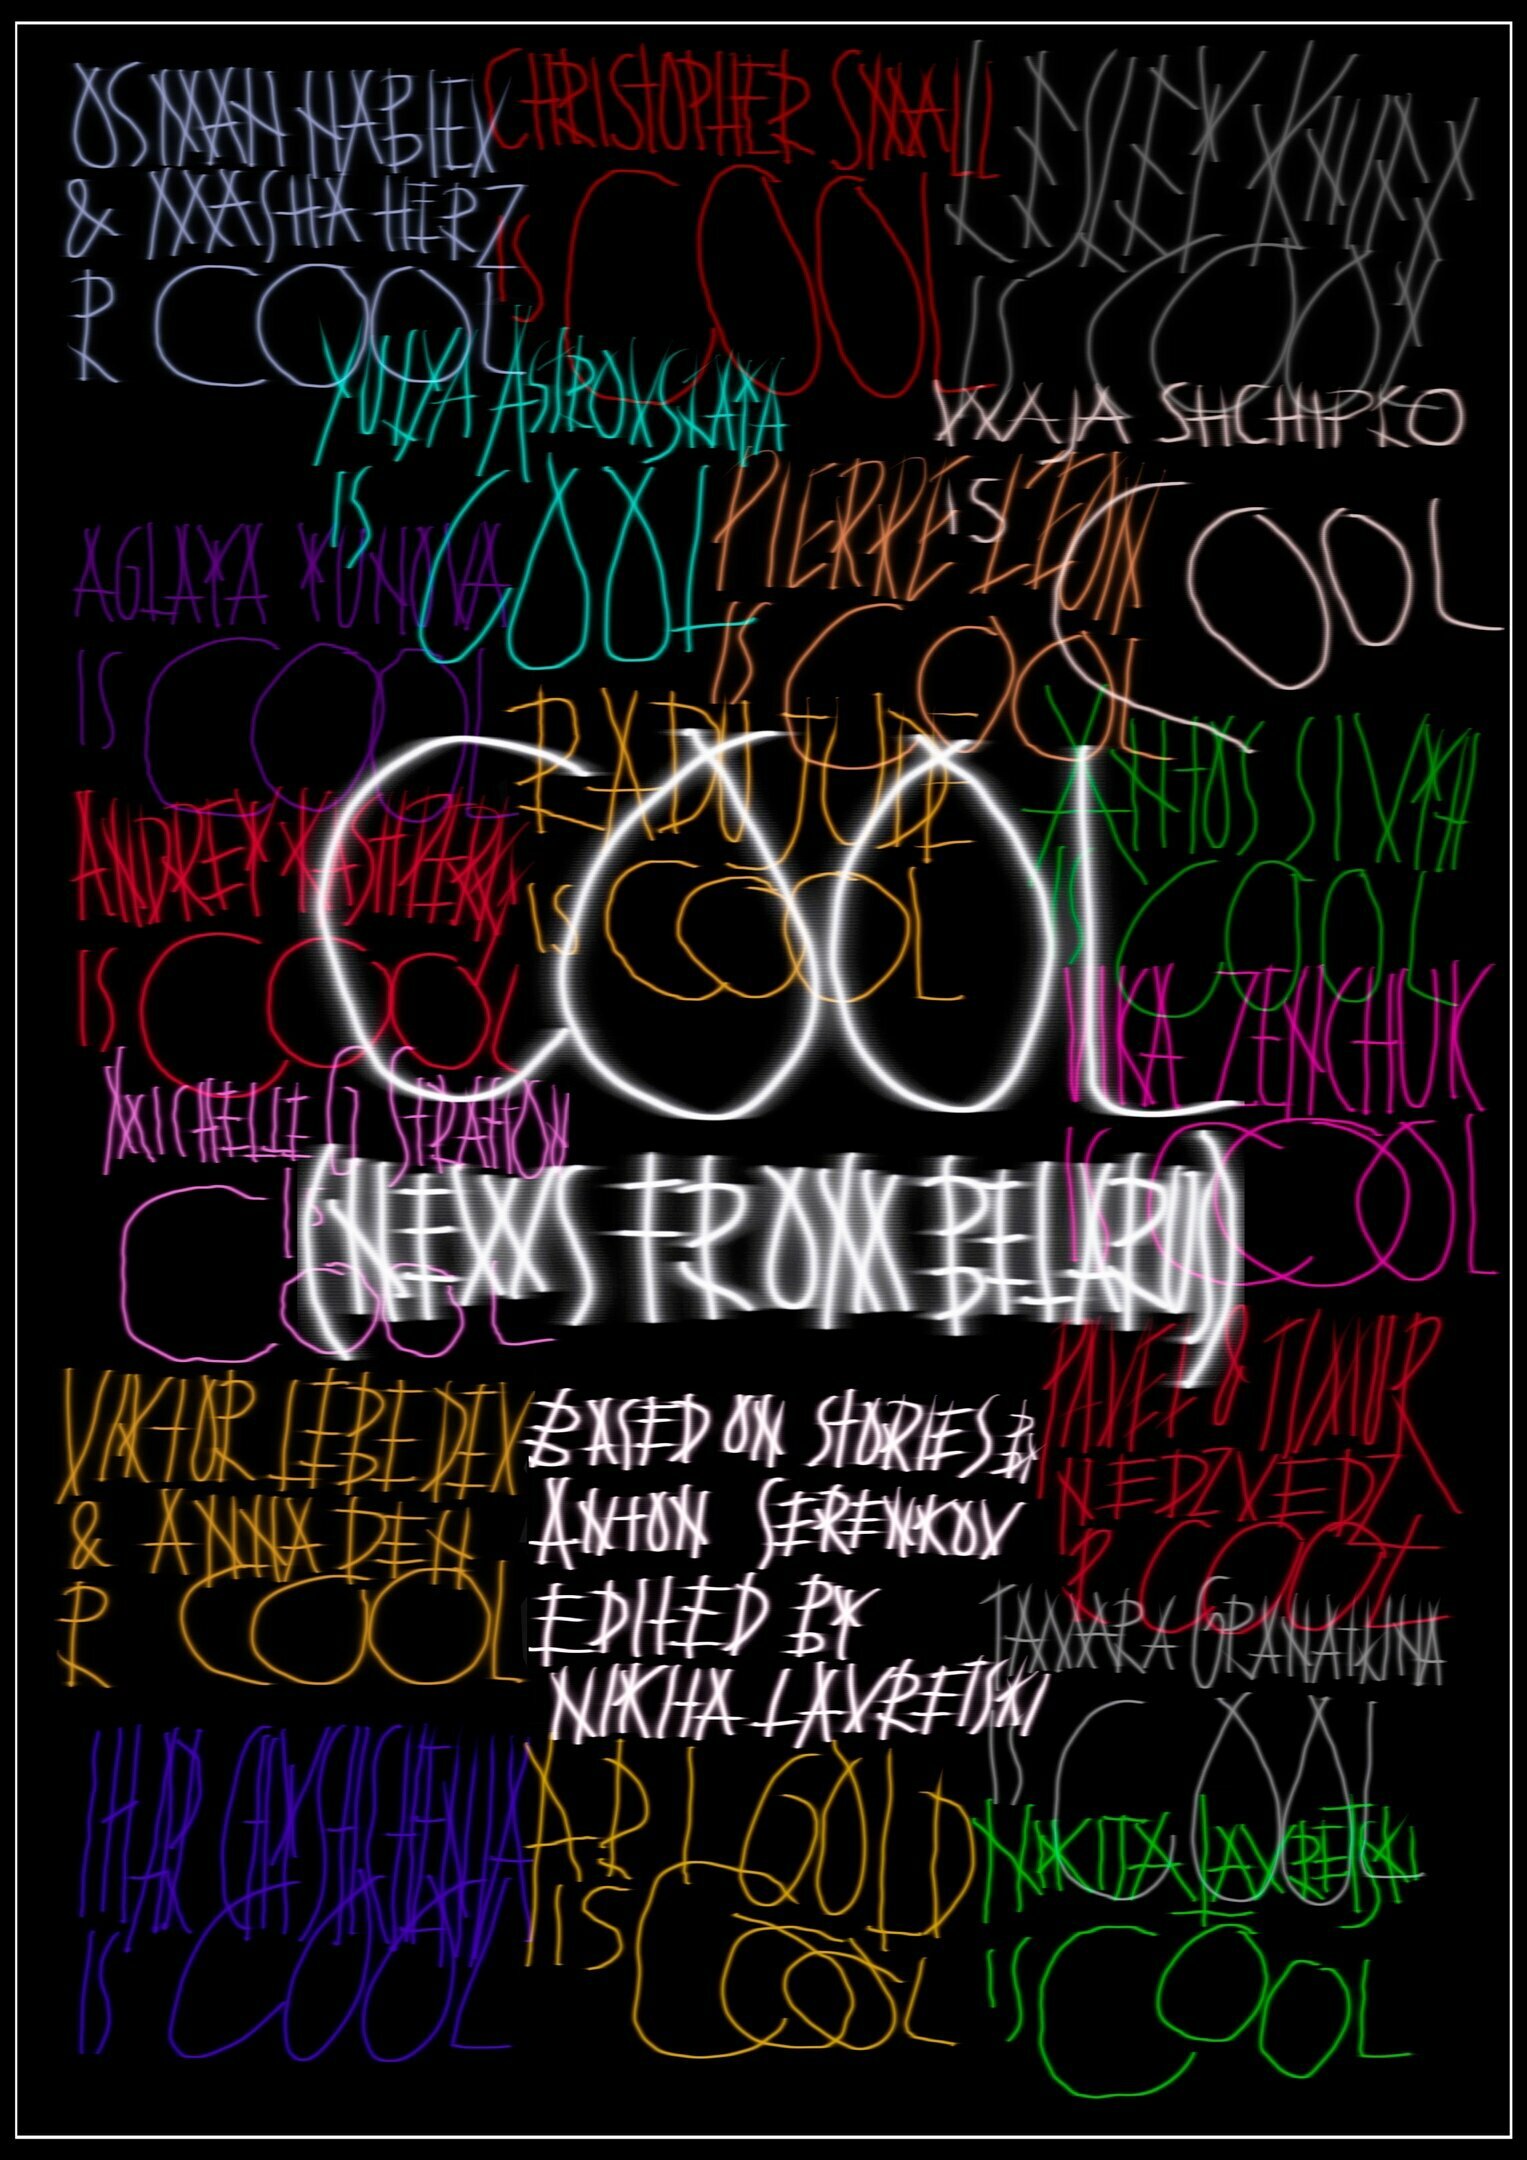 OSMAN NABIEV
& MASHA HERZ
R COOL
CHRISTOPHER SMALL
IS COOL
LESLEY
IS COOL
YULIYA
IS COOL
VVAJA SHCHIPKO
IS
COOL
PIERRE LEON
IS COOL
AGLAYA YUNOVA
IS COOL
RADU JUDE
IS COOL
XANTOS SIVYH
IS COOL
ANDREY
IS COOL
COOL
VIKA ZENCHUK
IS COOL
MICHELLE D STRATTON
IS
COOL
(NEWS FROM BELARUS)
PAVEL & TIMUR
NEDZVEDZ
R COOL
VIKTOR LEBEDEV
& ANNA DEN
R COOL
BASED ON STORIES BY
ANTON SERENKOV
EDITED BY
NIKITA LAVRETSKI
TAMARA GRANATKINA
IS COOL
IHAR
IS COOL
ARI GOLD
IS COOL
NIKITA LAVRETSKI
IS COOL